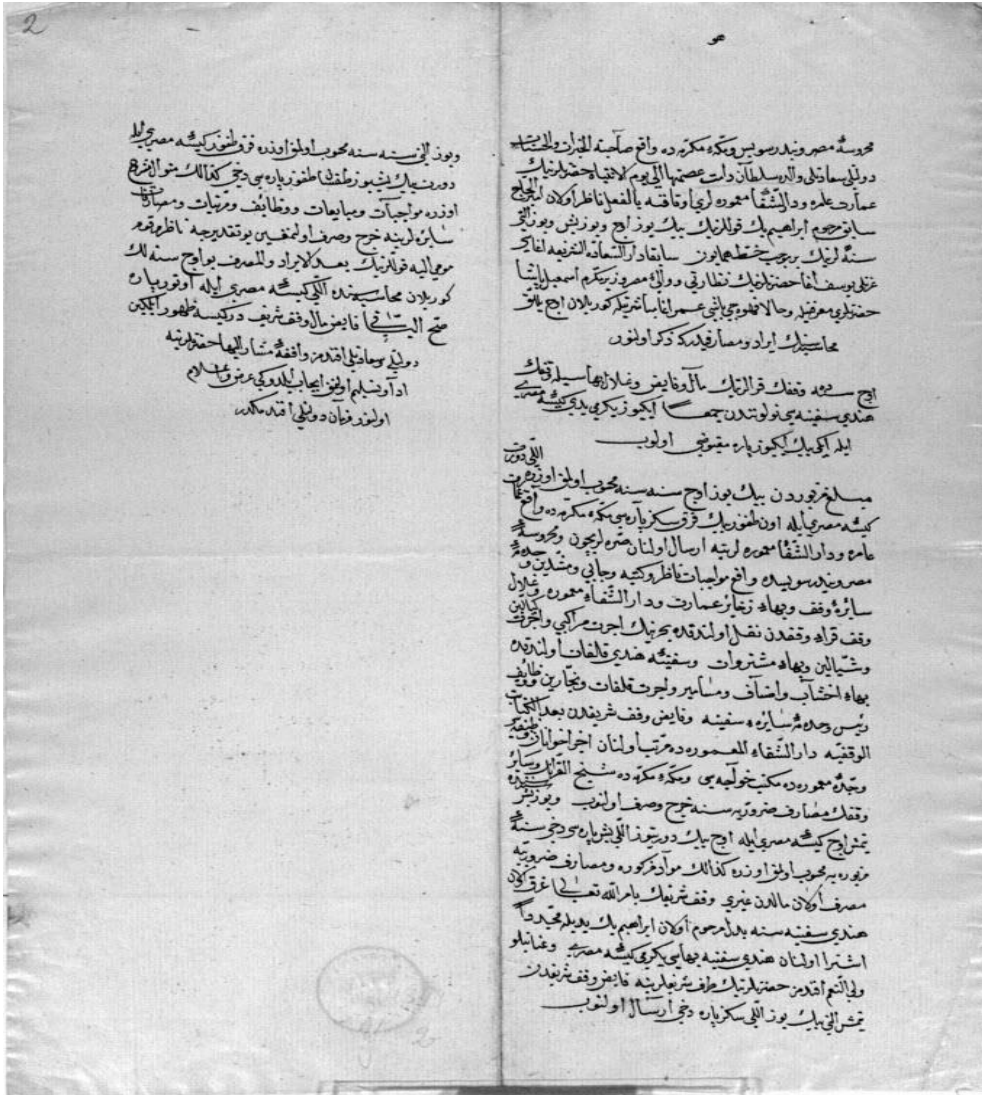 2
هو
محروسهٔ مصر وبندر سويس ومكهٔ مكرمه ده واقع صاحبة الخيرات والحسنات
دولتلو سعادتلو والده سلطان دامت عصمتها الى يوم الانتباه حضرتلرينك
عمارت عامره ودار الشفاء معموره لرى اوقافنه بالفعل ناظر اولان اميرالحاج
سابق مرحوم ابراهيم بك قوللرينك بيك يوز اوچ ويوز بش ويوز التى
سنه لرينك بر موجب خط همايون سابقا دار السعادة الشريفه اغاسى
عزتلو يوسف اغا حضرتلرينك نظارتى ووالئ مصر وزير مكرم اسمعيل پاشا
حضرتلرى معرفتيله وحالا قپوجى باشى عمر اغا مباشرتيله كوريلان اوچ ييللق
محاسبه نك ايراد ومصارفيدر كه ذكر اولنور
اوچ سنه ده وقفك قرالرينك مال وفايض وغلال بهاسيله وقفك
هندى سفينه سى نولوندن جمعا ايكيوز يكرمى يدى كيسه مصرى
ايله ايكى بيك ايكيوز پاره مقبوضى اولوب
مبلغ مزبوردن بيك يوز اوچ سنه سنه محسوب اولمق اوزره اللى دورت
كيسه مصرى ايله اون طقوز بيك قرق سكز پاره سى مكهٔ مكرمه ده واقع عمارت
عامره ودار الشفاء معموره لرينه ارسال اولنان صره لريچون ومحروسهٔ
مصر وبندر سويسده واقع مواجبات ناظر وكتبه وجابى ومشدين وخدمهٔ
سائرهٔ وقف وبهاء ذخائر عمارت ودار الشفاء معموره وغلال
وقف قراء وقفدن نقل اولندقده بحر نيك اجرت مراكبى واجرت كيالين
وشيالين وبهاء مشتروات وسفينهٔ هندى قالفات اولندقده
بهاء اخشاب واصناف ومسامير واجرت قلفات ونجارين ووظائف
رئيس وخدمهٔ سائرهٔ سفينه وفايض وقف شريفدن بعد
الوقفيه دار الشفاء المعموره ده مرتب اولنان
وجدهٔ معموره ده مكتب خواجه سى ومكهٔ مكرمه ده شيخ القرا وسائر
وقفك مصارف ضروريه سنه خرج وصرف اولنوب ويوز بش سنه سنده
يتمش اوچ كيسه مصرى ايله اوچ بيك دورتيوز اللى بش پاره سى دخى سنهٔ
مزبوره يه محسوب اولمق اوزره كذالك مواد مذكوره ومصارف ضروريه
مصرف اولان مالدن غيرى وقف شريفك بامر الله تعالى غرق اولان
هندى سفينه سنه بدل مرحوم اولان ابراهيم بك يديله مجددا
اشترا اولنان هندى سفينه بهايى يكرمى كيسه مصرى وعنايتلو
ولى النعم افندمز حضرتلرينك طرف شريفلرينه فايض وقف شريفدن
يتمش التى بيك يوز اللى سكز پاره دخى ارسال اولنوب
ويوز التى سنه سنه محسوب اولمق اوزره قرق طقوز كيسه مصرى ايله
دورت بيك بشيوز طقسان طقوز پاره سى دخى كذالك منوال مشروح
اوزره مواجبات ومبايعات ووظائف ومرتبات ومصارفات
سائره لرينه خرج وصرف اولنمغين بو تقديرجه ناظر مرقوم
مومى اليه قوللرينك بعد الايراد والمصرف بو اوچ سنه لك
كوريلان محاسبه سنده اللى كيسه مصرى ايله اوتوز پاره
صح الباقى فايض مال وقف شريف در كيسه ظهور ايلمكين
دولتلو سعادتلو افندمز واقفهٔ مشار اليها حضرتلرينه
ادا وتسليم اولنمق ايجاب ايلدوكى عرض واعلام
اولنور فرمان دولتلو افندمكدر